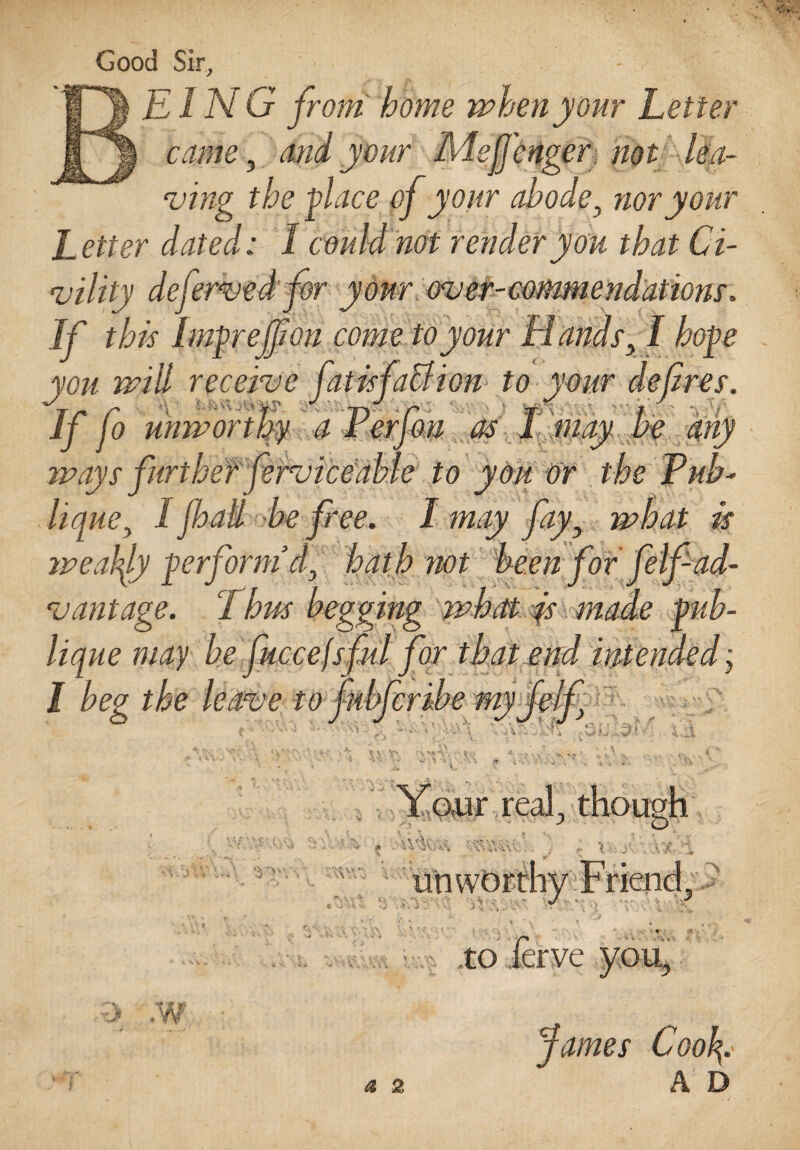 Good Sir,
BEING from home when your Letter
came, and your Meſſenger not lea-
ving the place of your abode, nor your
Letter dated: I could not render you that Ci-
vility deſerved for your over-commendations.
If this Impreſſion come to your Hands, I hope
you will receive ſatisfaction to your deſires.
If ſo unworthy a Perſon as I may be any
ways further ſerviceable to you or the Pub-
lique, I ſhall be free. I may ſay, what is
weakly perform'd, hath not been for ſelf-ad-
vantage. Thus begging what is made pub-
lique may be ſucceſsful for that end intended;
I beg the leave to ſubſcribe my ſelf,
Your real, though
unworthy Friend,
to ſerve you,
James Cook.
a 2 A D